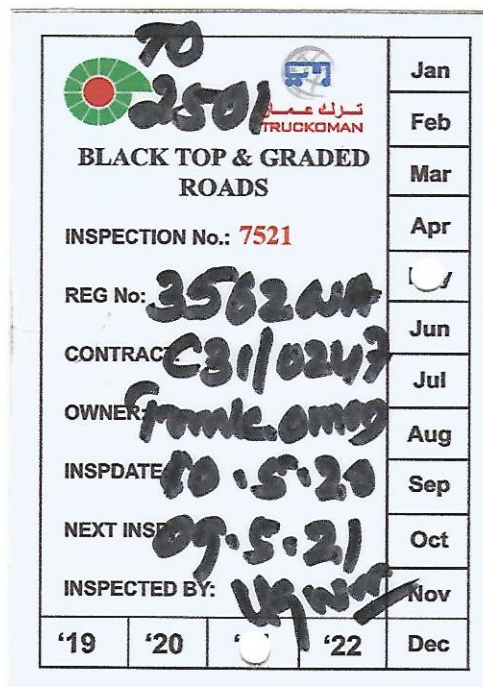 TO
2501
ترك عمان
TRUCKOMAN
BLACK TOP & GRADED
ROADS
INSPECTION No.: 7521
REG No: 3562
CONTRACT: C31/0247
OWNER:
INSPDATE 10.5.20
NEXT INSP 09.5.21
INSPECTED BY:
Jan
Feb
Mar
Apr
Jun
Jul
Aug
Sep
Oct
Nov
Dec
‘19
‘20
‘22